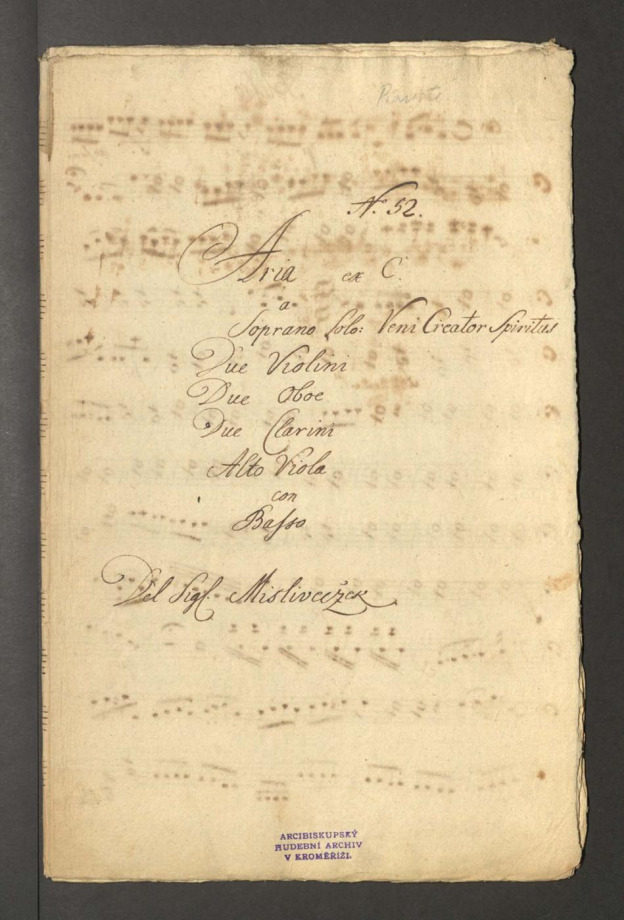 No. 52.
Aria ex C.
a
Soprano Solo: Veni Creator Spiritus
Due Violini
Due Oboe
Due Clarini
Alto Viola
con
Basso
Del Sigl. Mislivecžek
ARCIBISKUPSKÝ
HUDEBNÍ ARCHIV
V KROMĚŘÍŽI.